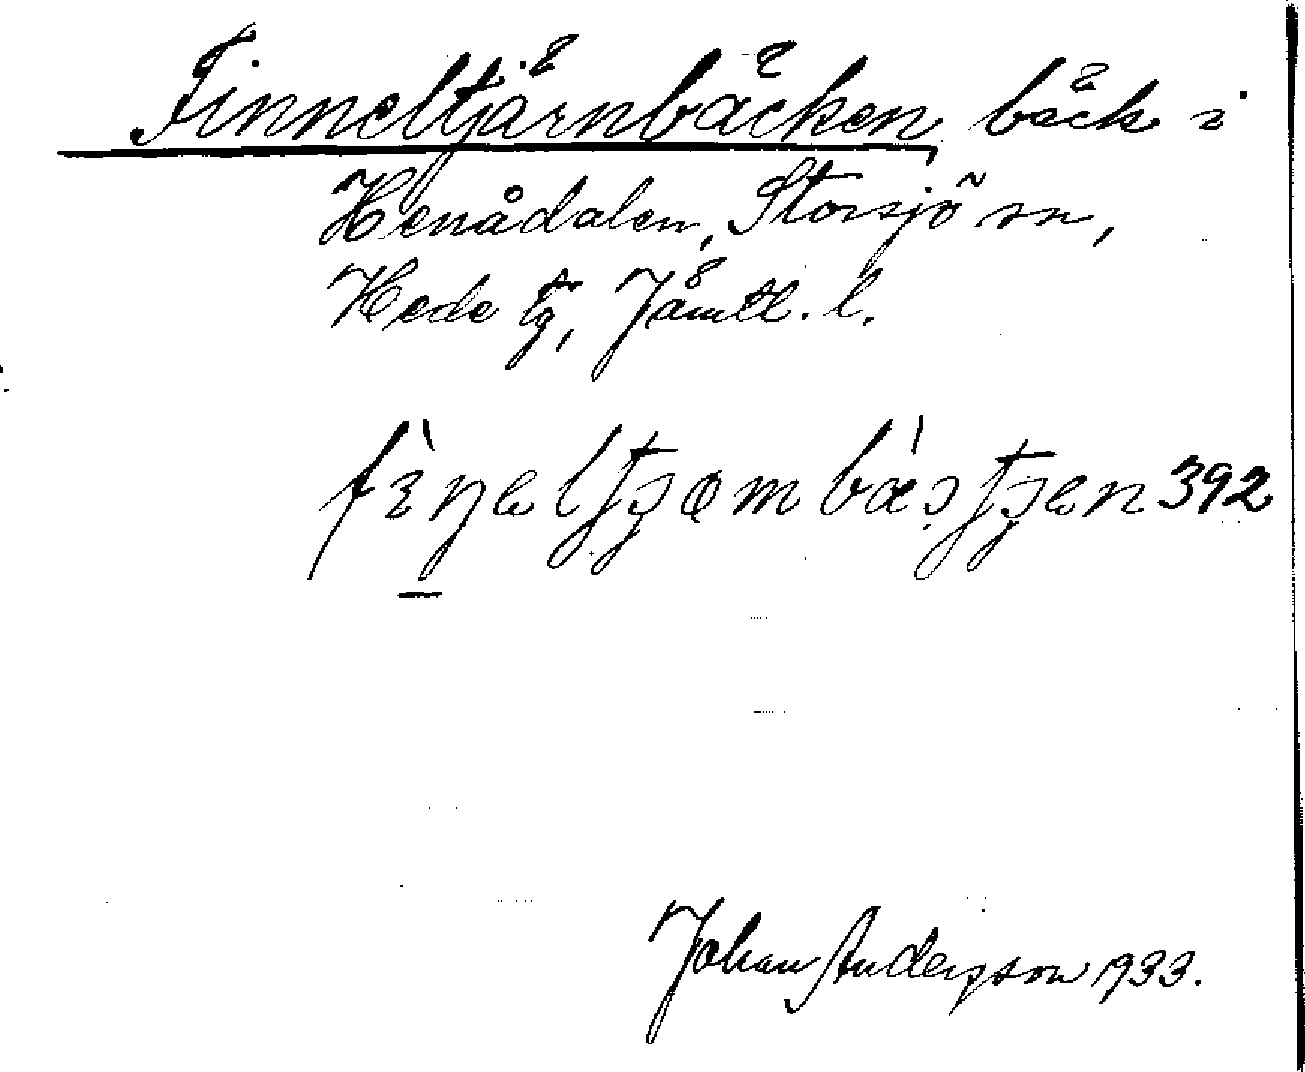 Finneltjärnbäcken, bäck i
Henådalen, Storsjö sn,
Hede tg, Jämtl. l.
392
Johan Andersson 1933.